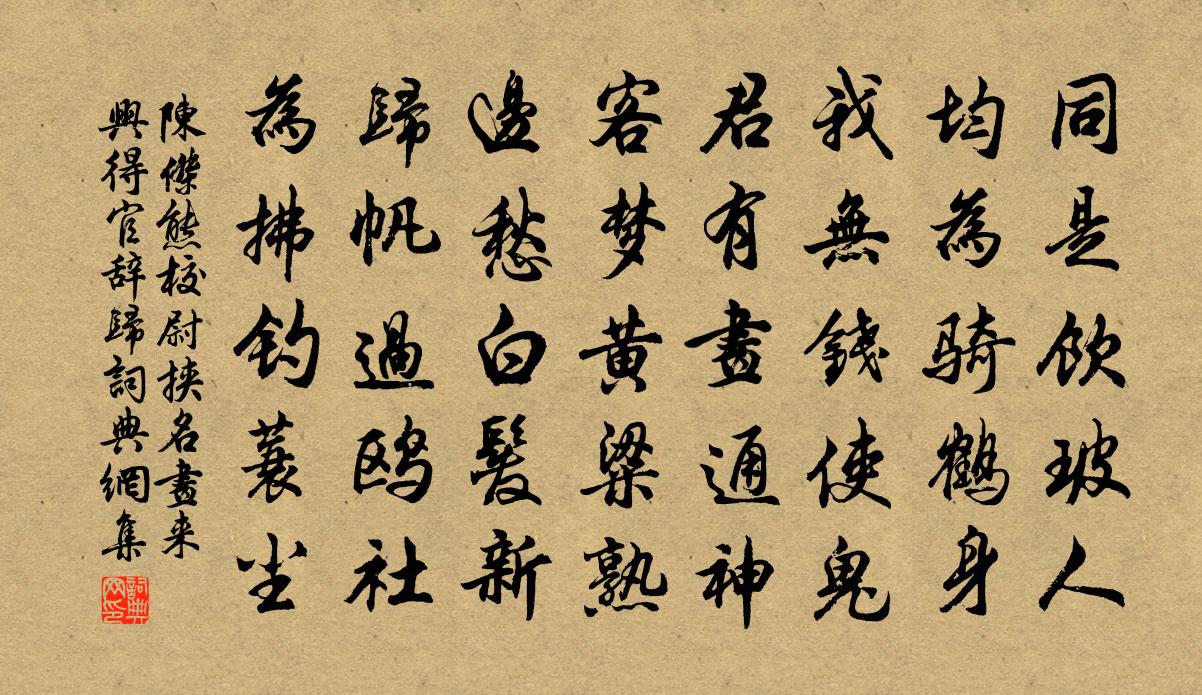 同是飲玻人
均為騎鶴身
我無錢使鬼
君有畫通神
客梦黄粱熟
邊愁白髮新
歸帆過鸥社
為拂钓蓑尘
陳傑熊校尉挾名畫来
興得官辞歸詞典網集
詞典网印